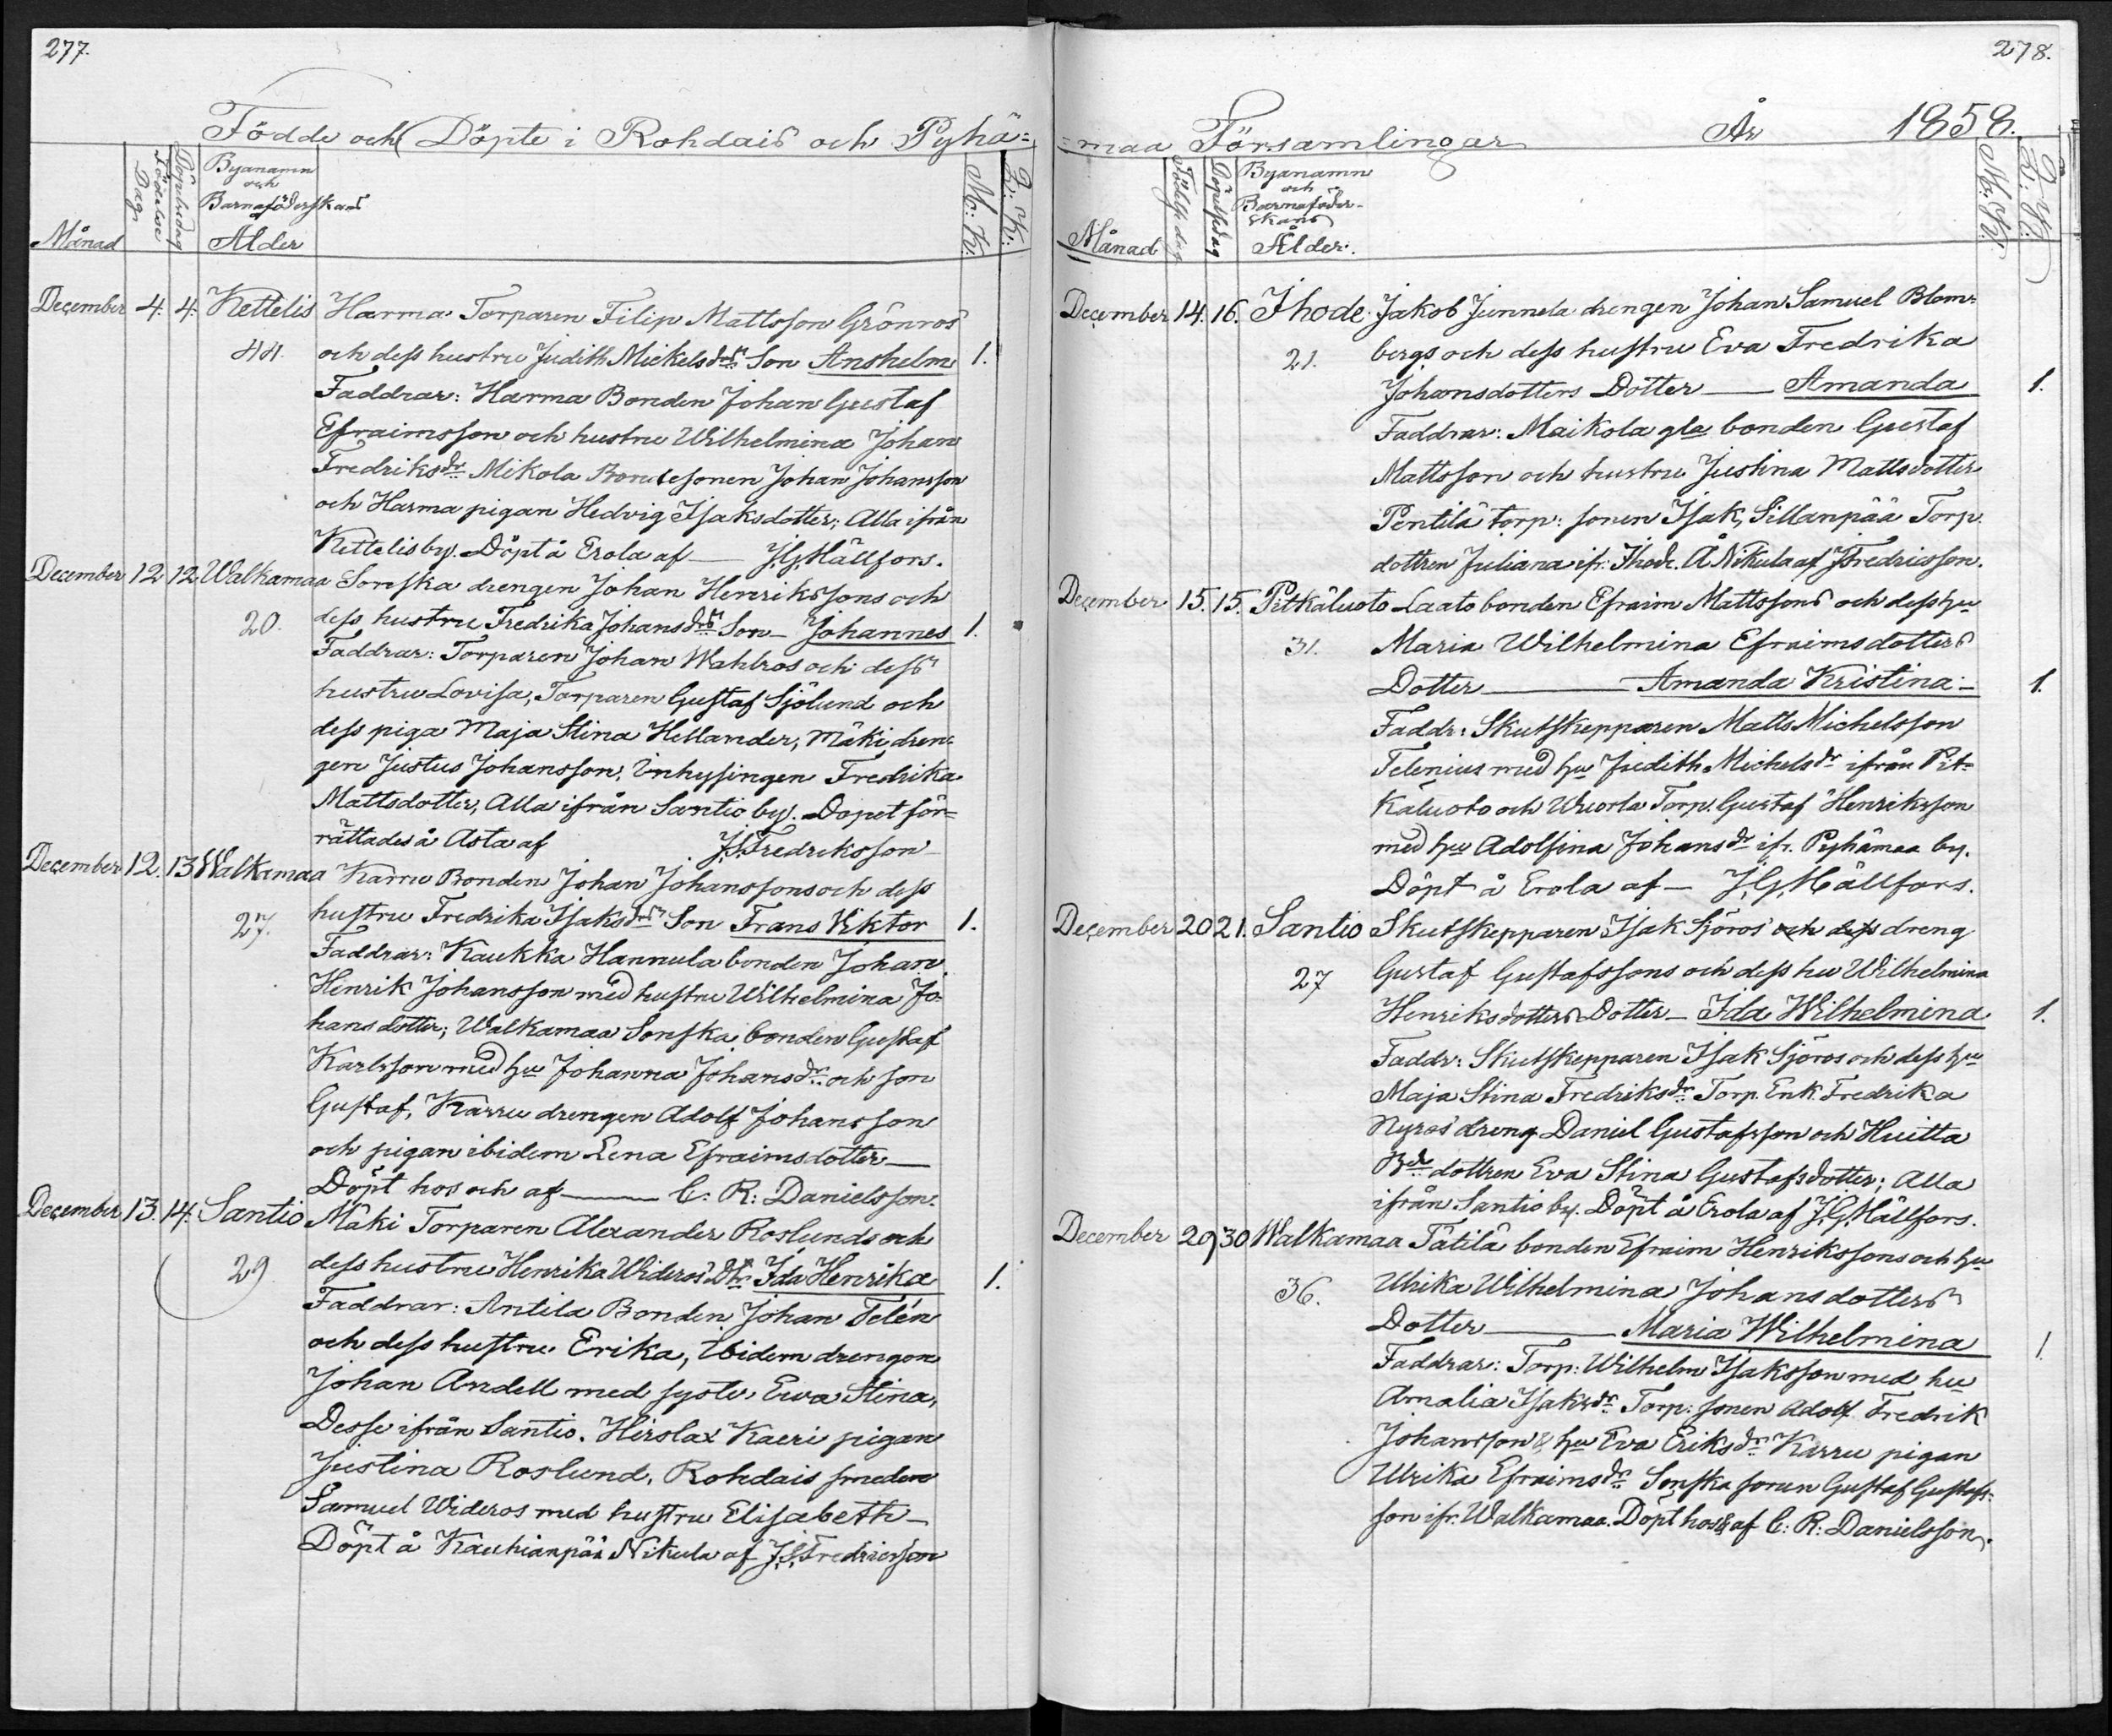 277.
Födde och Döpte i Rohdais och Pyhä=
Månad
Födelse Dag
Döpelsedag
Byanamn
och
Barnaföderskans
Ålder
M: K:
Q: K:
December 4. 4. Kettelis Harma Torparen Filip Mattsson Grönros
44. och dess hustru Judith Mickelsdrs Son Anshelm 1.
Faddrar: Harma Bonden Johan Gustaf
Efraimsson och hustru Wilhelmina Johan
Fredriksdr Mikola Bondesonen Johan Johansson
och Harma pigan Hedvig Isaksdotter; Alla ifrån
Kettelis by. Döpt å Erola af — J.G. Hällfors.
December 12 12 Walkamaa Sorfska drengen Johan Henrikssons och
20. dess hustru Fredrika Johansdrs Son — Johannes 1.
Faddrar: Torparen Johan Wahlros och dess
hustru Lovisa, Torparen Gustaf Sjölund och
dess piga Maja Stina Hellander, Mäki dren=
gen Justus Johansson, Inhysingen Fredrika
Mattsdotter, Alla ifrån Santio by. Dopet för=
rättades å Asta af J.S. Fredriksson
December 12. 13 Walkamaa Karru Bonden Johan Johanssons och dess
27. hustru Fredrika Isaksdrs Son Frans Viktor 1.
Faddrar: Kaukka Hannula bonden Johan
Henrik Johansson med hustru Wilhelmina Jo=
hansdotter; Walkamaa Sonska bonden Gustaf
Karlsson med hu Johanna Johansdr och son
Gustaf, Karru drengen Adolf Johansson
och pigan ibidem Lena Efraimsdotter —
Döpt hos och af — C: R: Danielsson.
December 13. 14. Santio Mäki Torparen Alexander Roslunds och
29 dess hustru Henrika Wideros' Dtr Ida Henrika 1.
Faddrar: Antila Bonden Johan Telén
och dess hustru Erika, Ibidem drengen
Johan Andell med syster Ewa Stina,
Desse ifrån Santio. Hirslax Kaeri pigan
Justina Roslund, Rohdais smeden
Samuel Wideros med hustru Elisabeth —
Döpt å Kauhianpää Nikula af J.S. Fredricsson
278.
=maa Församlingar År 1858.
Månad
Födelsedag
Döpelsedag
Byanamn
och
Barnaföder-
skans
Ålder.
M: K:
Q: K:
December 14. 16. Ihode. Jakob Junnela drengen Johan Samuel Blom=
21. bergs och dess hustru Eva Fredrika
Johansdotters Dotter — Amanda 1.
Faddrar: Maikola gla bonden Gustaf
Mattsson och hustru Justina Mattsdotter
Pentilä torp: sonen Isak, Sillanpää Torp.
dottren Juliana ifr: Ihode. Å Nikula af J. Fredricsson.
December 15. 15. Pitkäluoto Laato bonden Efraim Mattssons och dess hu
31. Maria Wilhelmina Efraimsdotters
Dotter — Amanda Kristina — 1.
Faddr: Skutskepparen Matts Michelsson
Telenius med hu Judith Michelsdr ifrån Pit=
käluoto och Wuorla Torp. Gustaf Henriksson
med hu Adolfina Johansdr ifr. Pyhämaa by.
Döpt å Erola af — J.G. Hällfors.
December 20 21. Santio Skutskepparen Isak Sjöros' och dess dreng
27 Gustaf Gustafssons och dess hu Wilhelmina
Henriksdotters Dotter — Ida Wilhelmina 1.
Faddr: Skutskepparen Isak Sjöros och dess hu
Maja Stina Fredriksdr Torp. Enk. Fredrika
Nyros' dreng Daniel Gustafsson och Huitta
Bde dottren Eva Stina Gustafsdotter; Alla
ifrån Santio by. Döpt å Erola af J.G. Hällfors.
December 29 30 Walkamaa Tätilä bonden Efraim Henrikssons och hu
36. Ulrika Wilhelmina Johansdotters
Dotter — Maria Wilhelmina 1.
Faddrar: Torp: Wilhelm Isaksson med hu
Amalia Isaksdr Torp: sonen Adolf Fredrik
Johansson & hu Eva Eriksdr Karru pigan
Ulrika Efraimsdr Sonska sonen Gustaf Gustafs=
son ifr. Walkamaa. Döpt hos & af C: R: Danielsson.